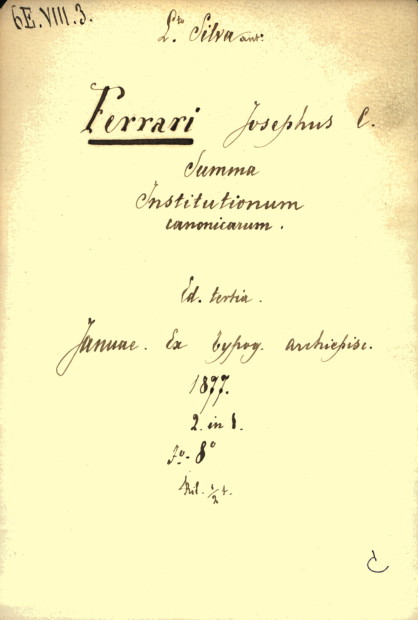 6E.VIII.3.
L.to Silva ant.
Ferrari Josephus C.
Summa
Institutionum
canonicarum.
Ed. tertia.
Januae. Ex typog. archiepisc.
1877.
2. in 1.
8°
Ril. ½